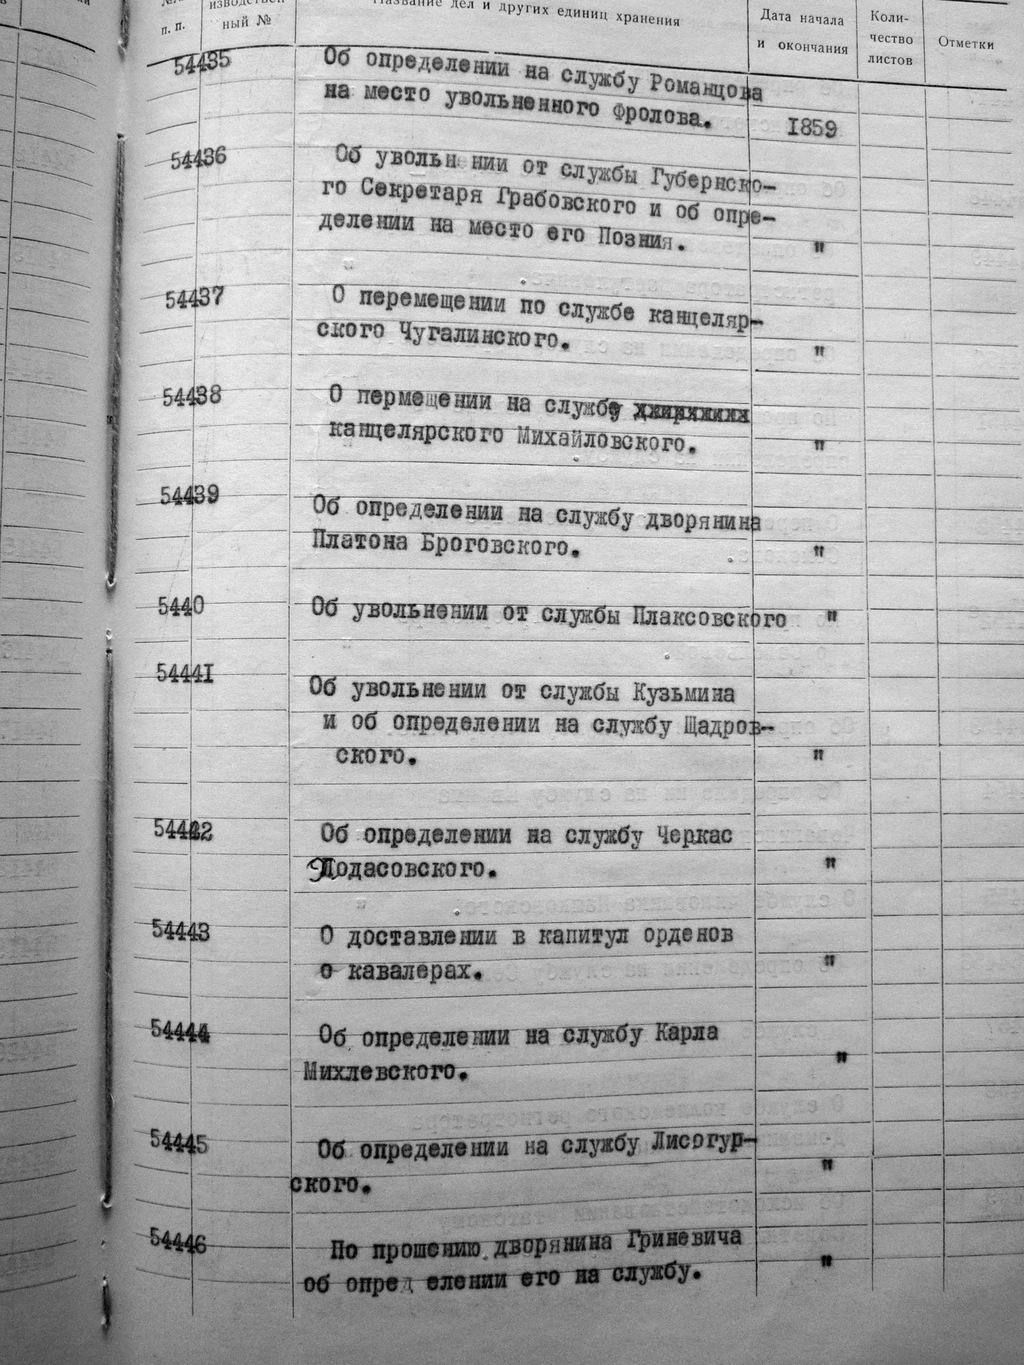 п. п.
ный №
Название дел и других единиц хранения
Дата начала
и окончания
Коли-
чество
листов
Отметки
54435 Об определении на службу Романцова
на место увольненного Фролова. 1859
54436 Об увольнении от службы Губернско-
го Секретаря Грабовского и об опре-
делении на место его Позния. "
54437 О перемещении по службе канцеляр-
ского Чугалинского. "
54438 О пермещении на службу
канцелярского Михайловского. "
54439 Об определении на службу дворянина
Платона Броговского. "
5440 Об увольнении от службы Плаксовского "
54441 Об увольнении от службы Кузьмина
и об определении на службу Щадров-
ского. "
54442 Об определении на службу Черкас
Подасовского. "
54443 О доставлении в капитул орденов
о кавалерах. "
54444 Об определении на службу Карла
Михлевского. "
54445 Об определении на службу Лисогур-
ского. "
54446 По прошению дворянина Гриневича
об опред елении его на службу. "